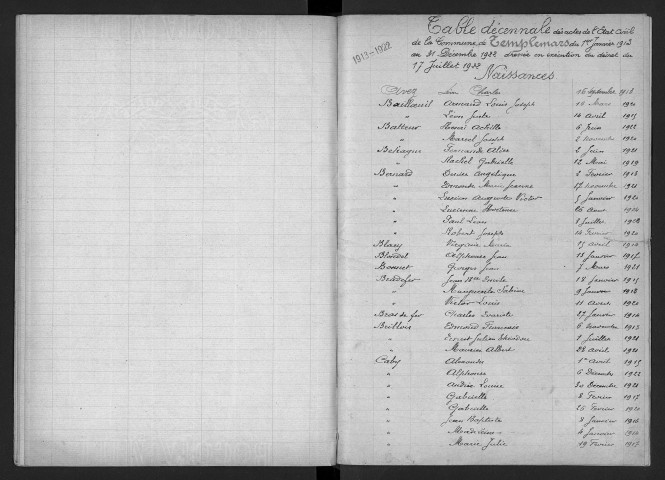 1913-1922
Table décennale des actes de l'Etat Civil
de la Commune de Templemars du 1er Janvier 1913
au 31 Décembre 1922 dressée en exécution du décret du
17 Juillet 1922
Naissances
Léon Charles 16 Septembre 1918
Bailleuil Armand Louis Joseph Mars 1920
" Léon Jules 14 Avril 1915
Batteur Henri Achille 6 Juin 1922
" Marcel Joseph 2 Novembre 1920
Fernande Alice 2 Juin 1921
" Rachel Gabrielle 12 Mai 1919
Bernard Désirée Angélique 2 Février 1913
" Marie Jeanne 17 Novembre 1921
" Lucien Augustin Victor 5 Janvier 1920
" Lucienne 26 Août
" Paul Léon 8 Juillet
" Robert Joseph 14 Février 1920
Virginie 15 Avril 1914
Blondel Alphonse Jean 15 Janvier 1915
Bonnet Georges Jean 7 Mars 1921
Jean Bte Emile 18 Janvier 1915
" Marguerite Sabine 9 Janvier 1918
" Victor Louis 11 Avril 1920
Bras de fer Charles 27 Janvier 1914
Brillois Edmond 6 Novembre 1913
" Ernest Julien 1 Juillet 1921
" Maurice Albert 28 Avril 1921
Caby Alexandre 1er Avril 1915
" Alphonse 6 Décembre 1922
" Andréa Louise 20 Décembre 1921
" Gabrielle 8 Février 1917
" Gabrielle 25 Février 1920
" Jean Baptiste 8 Janvier 1914
" 4 Janvier 1914
" Marie Julie 19 Février 1917